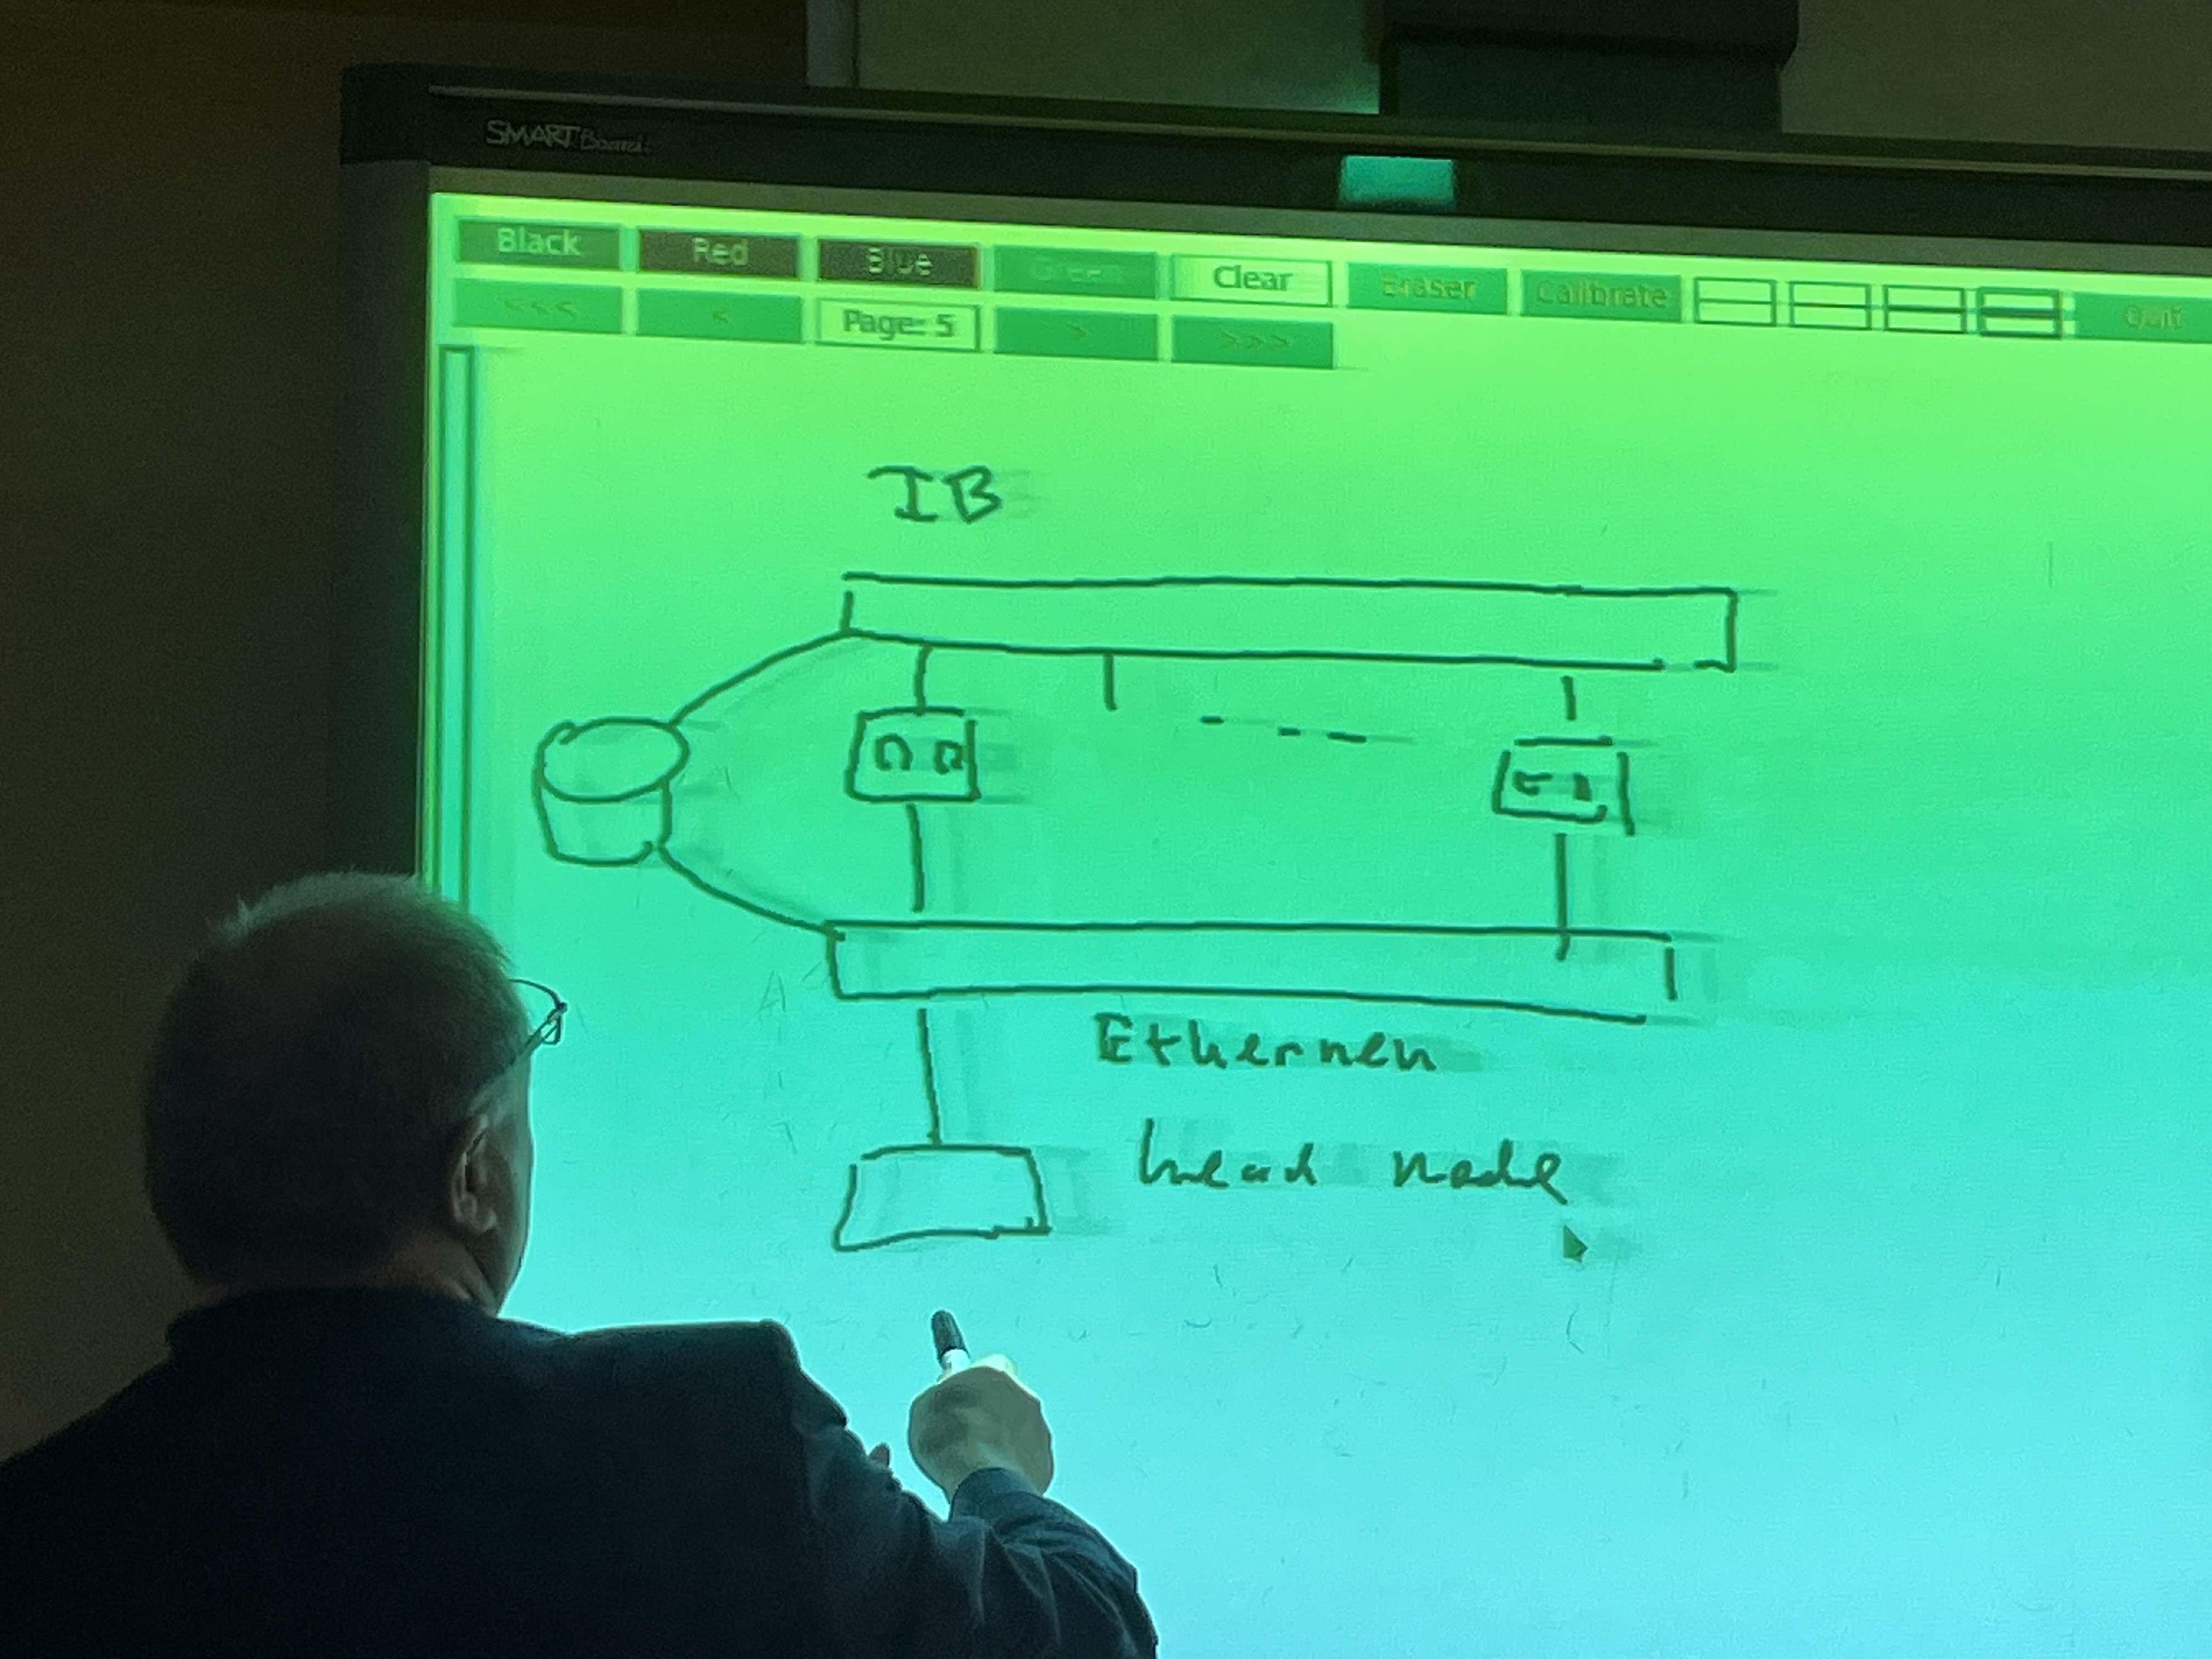 SMART Board
Black Red Blue Green Clear Eraser Calibrate Quit
<<< < Page: 5 > >>>
IB
Ethernen
head node